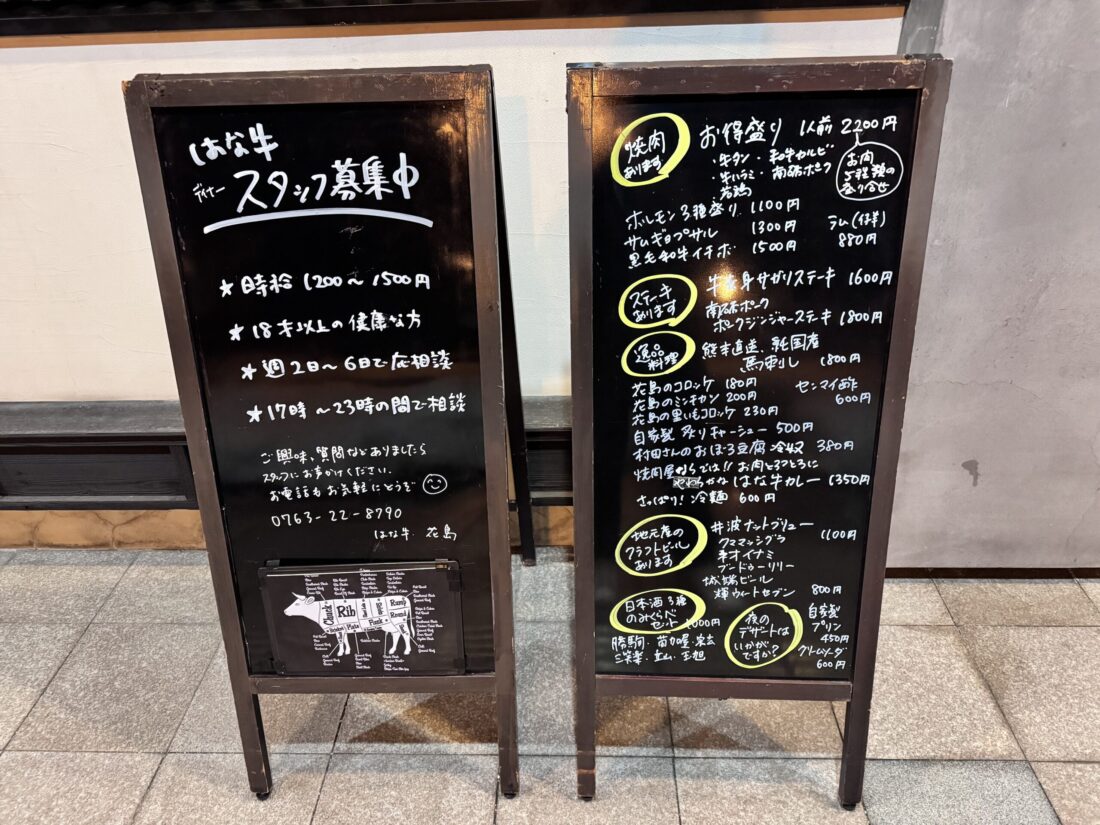 はな牛
ディナー スタッフ募集中
★時給 1200〜1500円
★18才以上の健康な方
★週2日〜6日で応相談
★17時〜23時の間で相談
ご興味、質問などありましたら
スタッフにお声がけください。
お電話もお気軽にどうぞ
0763-22-8790
はな牛 花島
Chuck
Rib
Rump
Round
Plate
Flank
焼肉
あります
お得盛り 1人前 2200円
・牛タン・和牛カルビ
・牛ハラミ・南砺ポーク
・若鶏
お肉
5種類の
盛り合せ
ホルモン3種盛り 1100円
サムギョプサル 1300円
黒毛和牛イチボ 1500円
ラム(仔羊)
880円
ステーキ
あります
牛赤身サガリステーキ 1600円
南砺ポーク
ポークジンジャーステーキ 1800円
逸品
料理
熊本直送、純国産
馬刺し 1800円
花島のコロッケ 180円
花島のミンチカツ 200円
花島の里いもコロッケ 230円
センマイ酢
600円
自家製 炙りチャーシュー 500円
村田さんのおぼろ豆腐 冷奴 380円
焼肉屋ならでは!! お肉とろとろに
やわらかな はな牛カレー 1350円
さっぱり! 冷麺 600円
地元産の
クラフトビール
あります
井波ナットブリュー
クママッシグラ
ネオイナミ
ブードゥーリリー
1100円
城端ビール
輝ウィートセブン 800円
日本酒3種
のみくらべ
セット 1000円
勝駒・苗加屋・宗玄
三笑楽・立山・玉旭
夜の
デザートは
いかが
ですか?
自家製
プリン
450円
クリームソーダ
600円